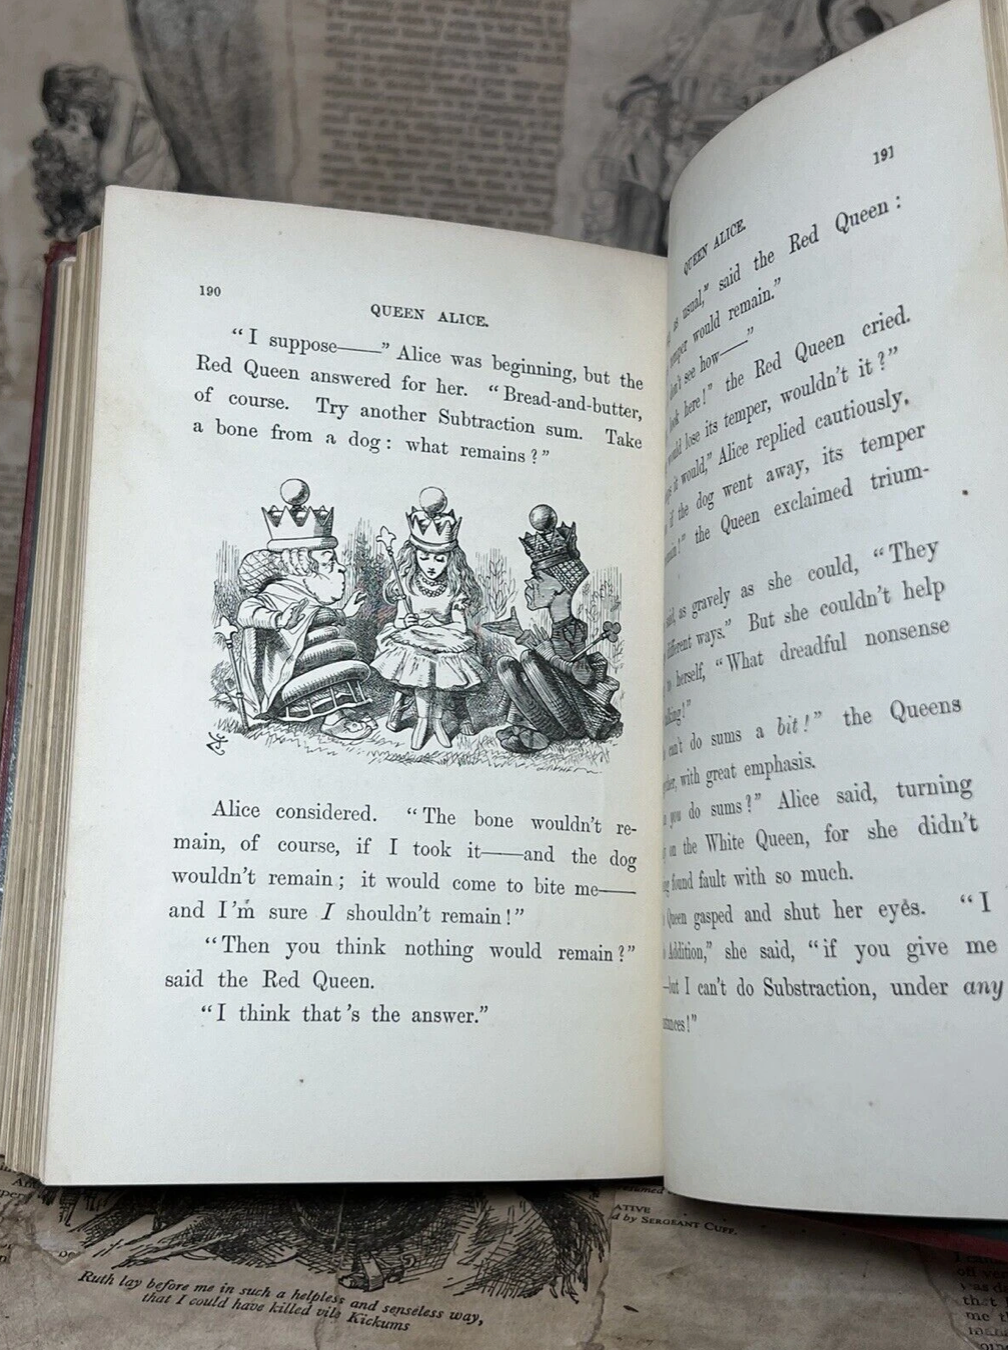 190
QUEEN ALICE.
“I suppose——” Alice was beginning, but the
Red Queen answered for her. “Bread-and-butter,
of course. Try another Subtraction sum. Take
a bone from a dog: what remains?”
Alice considered. “The bone wouldn’t re-
main, of course, if I took it——and the dog
wouldn’t remain; it would come to bite me——
and I’m sure I shouldn’t remain!”
“Then you think nothing would remain?”
said the Red Queen.
“I think that’s the answer.”
191
QUEEN ALICE.
as usual,” said the Red Queen:
temper would remain.”
see how——”
look here!” the Red Queen cried.
would lose its temper, wouldn’t it?”
it would,” Alice replied cautiously.
if the dog went away, its temper
the Queen exclaimed trium-
as gravely as she could, “They
different ways.” But she couldn’t help
herself, “What dreadful nonsense
can’t do sums a bit!” the Queens
with great emphasis.
you do sums?” Alice said, turning
on the White Queen, for she didn’t
found fault with so much.
Queen gasped and shut her eyes. “I
Addition,” she said, “if you give me
—but I can’t do Substraction, under any
Ruth lay before me in such a helpless and senseless way,
that I could have killed vile Kickums
by SERGEANT CUFF.